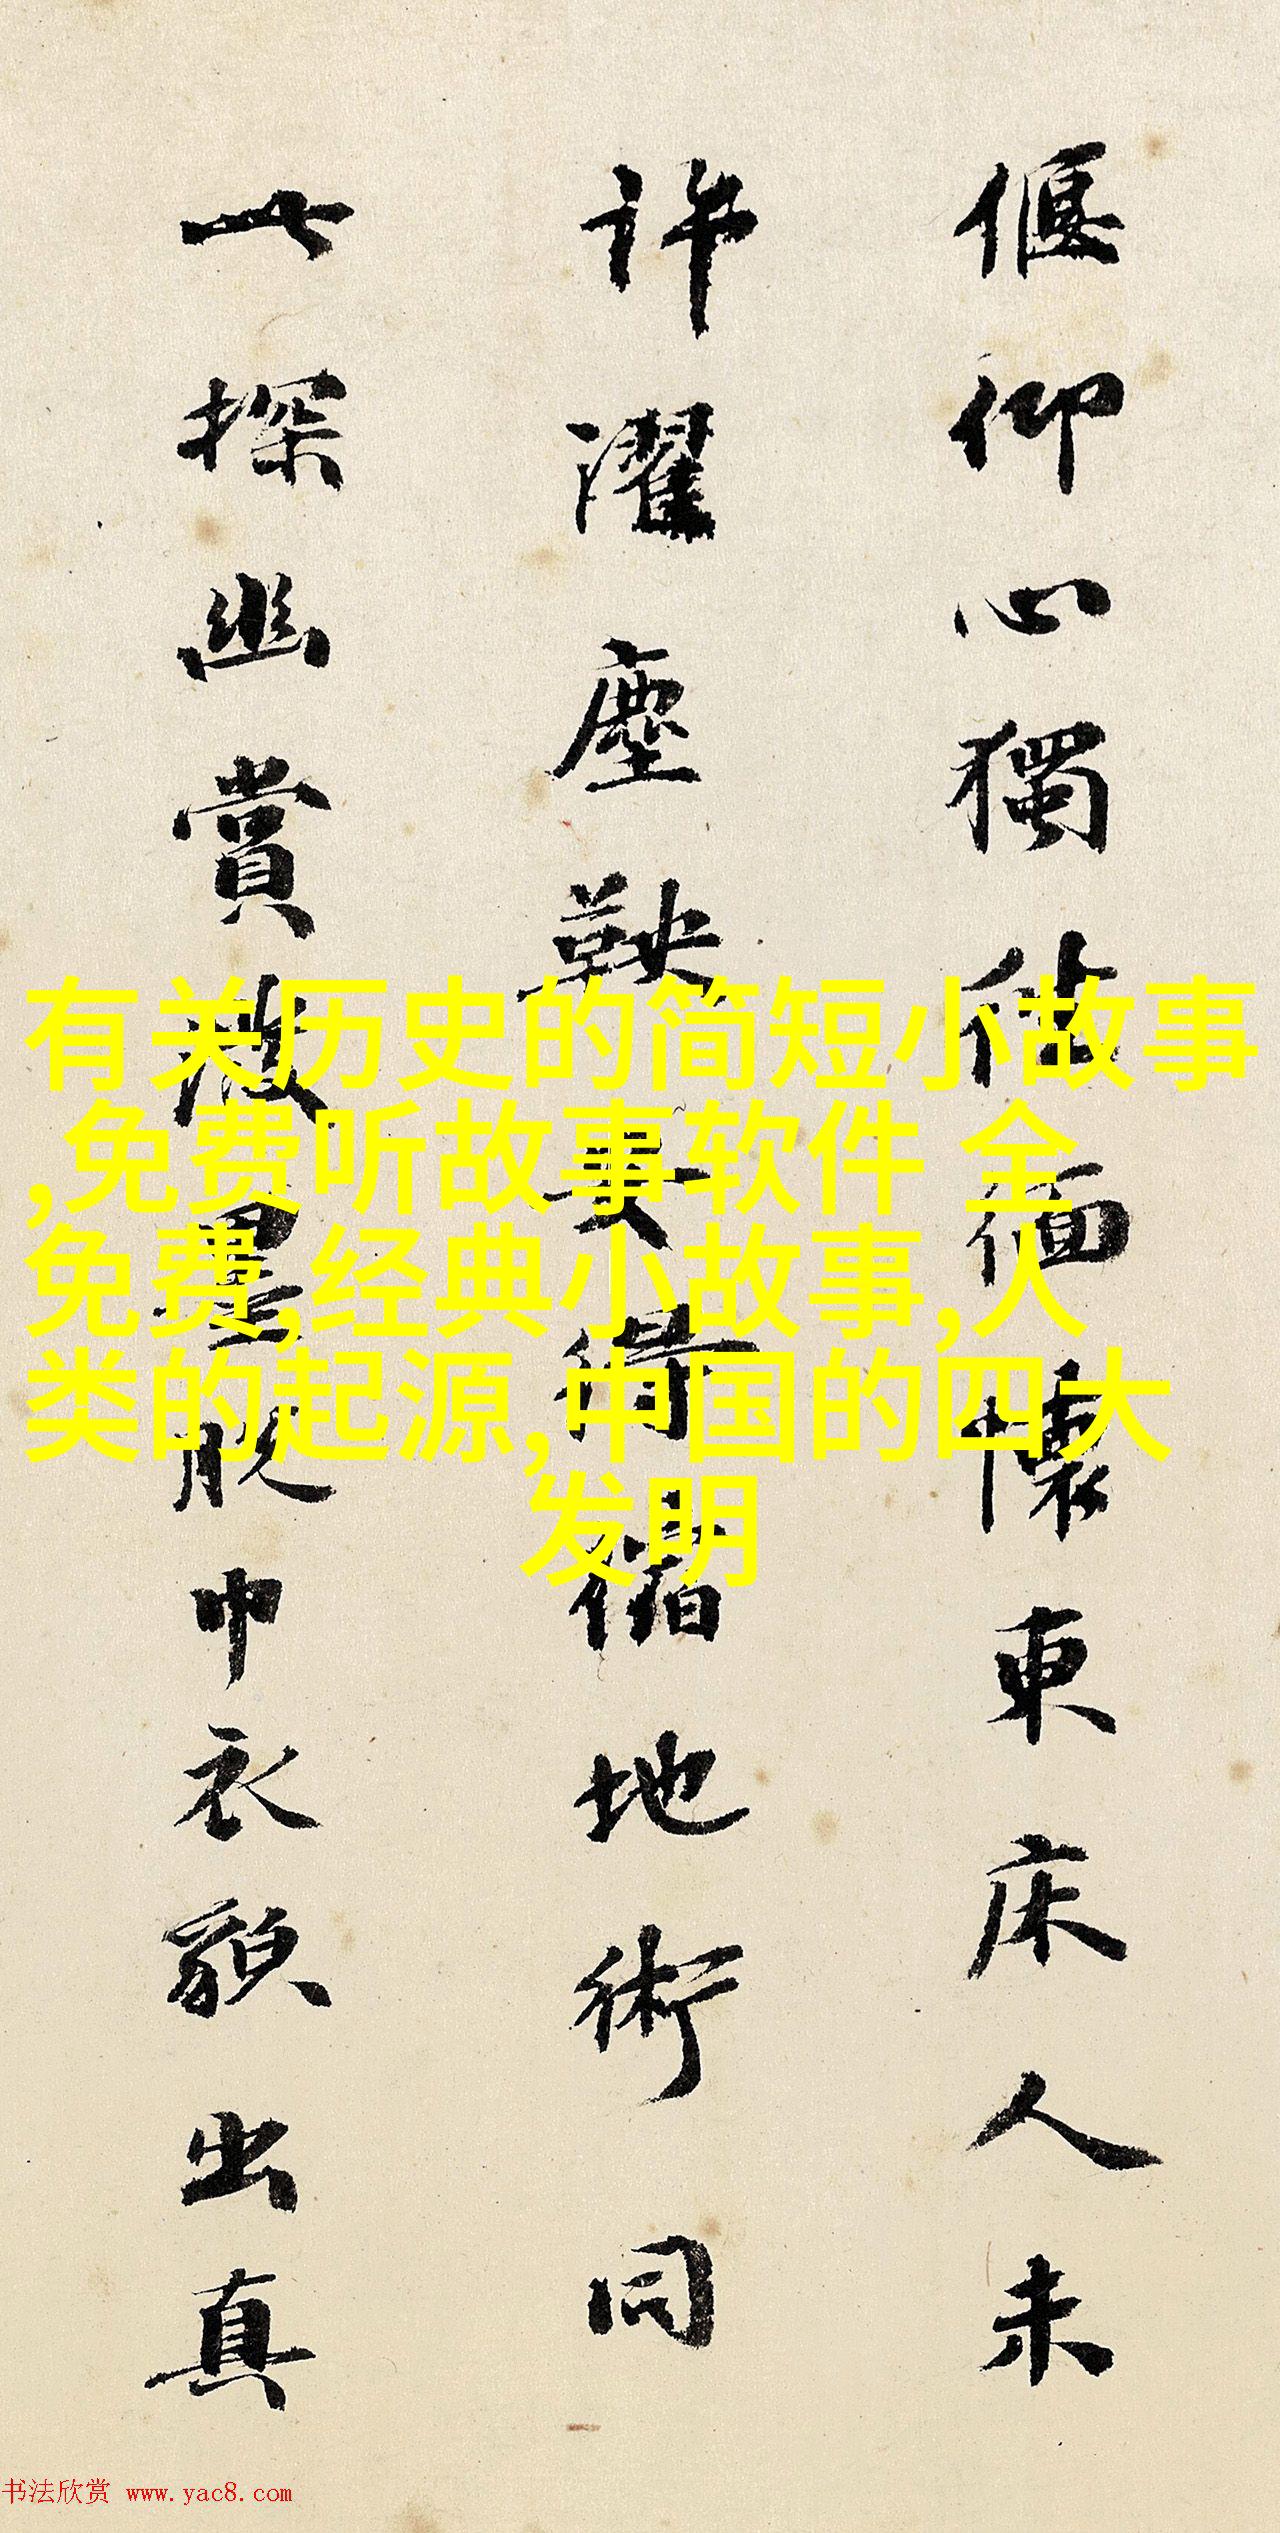 偃仰心獨
緬懷東床人未
許濯塵鞅
地術同
一探幽賞
脫巾衣貌出真
有关历史的简短小故事
,免费听故事软件 全
免费,经典小故事,人
类的起源,中国的四大
发明
书法欣赏 www.yac8.com